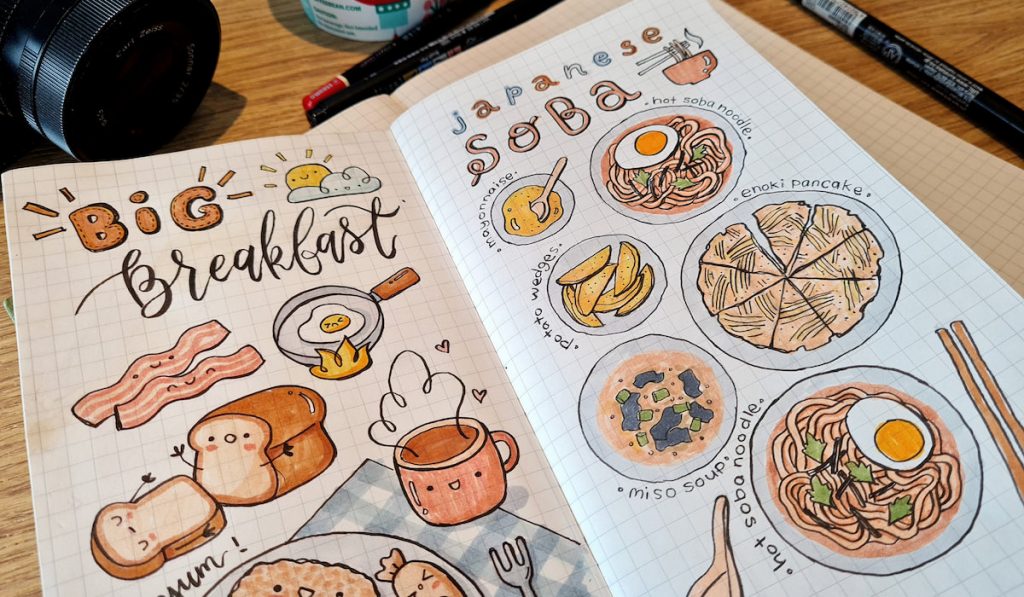 BiG
Breakfast
japanese
SOBA
·hot soba noodle·
·mayonnaise·
·enoki pancake·
·potato wedges·
·miso soup·
·hot soba noodle·